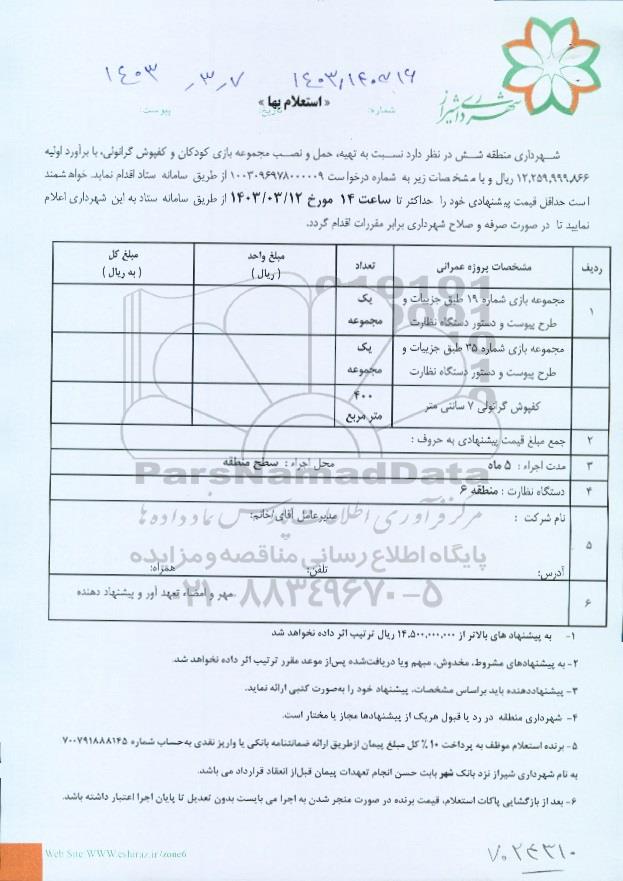 شهرداری شیراز
۱۴۰۳ ,۳,۷
« استعلام بها »
شماره:
تاریخ:
پیوست:
شهرداری منطقه شش در نظر دارد نسبت به تهیه، حمل و نصب مجموعه بازی کودکان و کفپوش گرانولی، با برآورد اولیه
۱۲,۲۵۹,۹۹۹,۸۶۶ ریال و با مشخصات زیر به شماره درخواست ۱۰۰۳۰۹۶۹۷۸۰۰۰۰۰۹ از طریق سامانه ستاد اقدام نماید. خواهشمند
است حداقل قیمت پیشنهادی خود را حداکثر تا ساعت ۱۴ مورخ ۱۴۰۳/۰۳/۱۲ از طریق سامانه ستاد به این شهرداری اعلام
نمایید تا در صورت صرفه و صلاح شهرداری برابر مقررات اقدام گردد.
ردیف مشخصات پروژه عمرانی تعداد مبلغ واحد ( ریال ) مبلغ کل ( به ریال )
۱ مجموعه بازی شماره ۱۹ طبق جزییات و یک
طرح پیوست و دستور دستگاه نظارت مجموعه
مجموعه بازی شماره ۳۵ طبق جزییات و یک
طرح پیوست و دستور دستگاه نظارت مجموعه
کفپوش گرانولی ۷ سانتی متر ۴۰۰ متر مربع
۲ جمع مبلغ قیمت پیشنهادی به حروف :
۳ مدت اجراء : ۵ ماه محل اجراء : سطح منطقه
۴ دستگاه نظارت : منطقه ۶
۵ نام شرکت : مدیرعامل آقای/خانم:
آدرس: تلفن: همراه:
۶ مهر و امضاء تعهد آور و پیشنهاد دهنده
ParsNamadData
مرکز فرآوری اطلاعات پارس نماد داده ها
پایگاه اطلاع رسانی مناقصه و مزایده
۰۲۱-۸۸۳۴۹۶۷۰-۵
۱- به پیشنهاد های بالاتر از ۱۴,۵۰۰,۰۰۰,۰۰۰ ریال ترتیب اثر داده نخواهد شد
۲- به پیشنهادهای مشروط، مخدوش، مبهم ویا دریافت‌شده پس‌از موعد مقرر ترتیب اثر داده نخواهد شد.
۳- پیشنهاددهنده باید براساس مشخصات، پیشنهاد خود را به‌صورت کتبی ارائه نماید.
۴- شهرداری منطقه در رد یا قبول هریک از پیشنهادها مجاز یا مختار است.
۵- برنده استعلام موظف به پرداخت ۱۰٪ کل مبلغ پیمان ازطریق ارائه ضمانتنامه بانکی یا واریز نقدی به‌حساب شماره ۷۰۰۷۹۱۸۸۸۱۴۵
به نام شهرداری شیراز نزد بانک شهر بابت حسن انجام تعهدات پیمان قبل‌از انعقاد قرارداد می باشد.
۶- بعد از بازگشایی پاکات استعلام، قیمت برنده در صورت منجر شدن به اجرا می بایست بدون تعدیل تا پایان اجرا اعتبار داشته باشد.
Web Site: WWW.eshiraz.ir/zone6